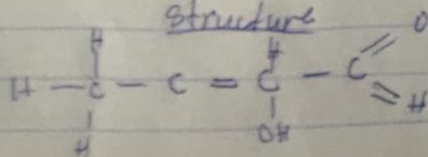 Structure
H H O
H - C - C = C - C
H OH H